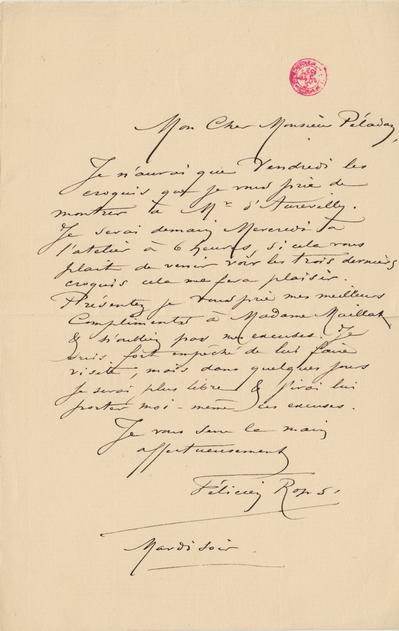 Mon Cher Monsieur Péladan,
Je n'aurai que Vendredi les
croquis que je vous prie de
montrer à Mr d'Aurevilly.
Je serai demain Mercredi à
l'atelier à 6 heures, si cela vous
plait de venir voir les trois derniers
croquis cela me fera plaisir.
Présentez je vous prie mes meilleurs
Compliments à Madame Maillat
& n'oubliez pas mes excuses. Je
suis fort empêché de lui faire
visite, mais dans quelques jours
Je serai plus libre & j'irai lui
porter moi-même ces excuses.
Je vous serre la main
affectueusement
Félicien Rops.
Mardi soir